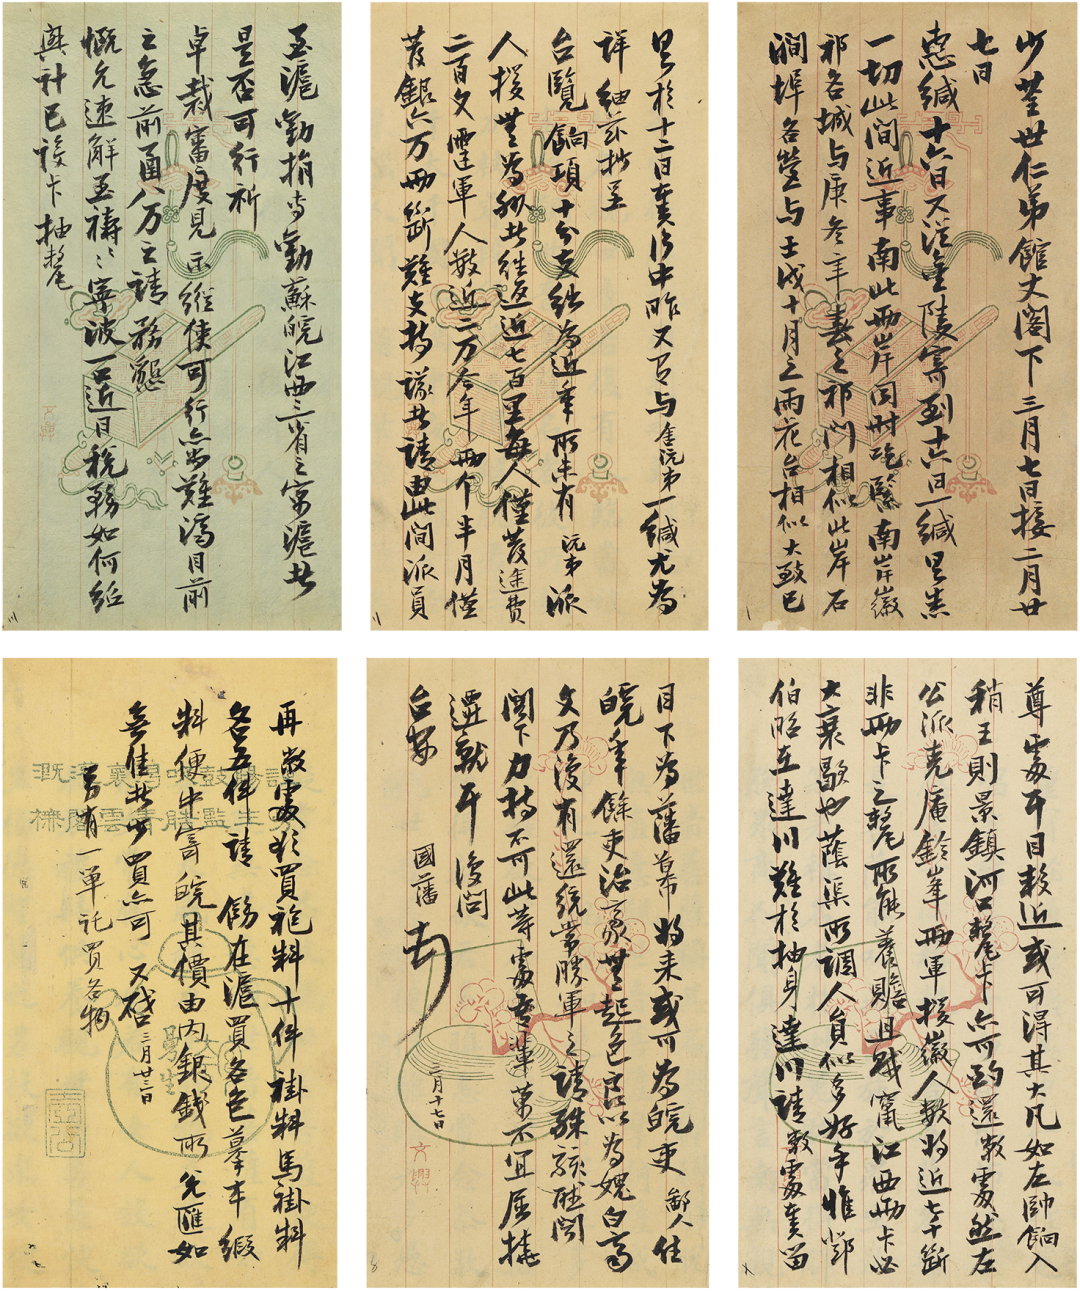 少荃世仁弟館丈閣下三月七日接二月廿
七日
惠緘十六日又從金陵寄到十六日一緘具悉
一切此間近事南北兩岸同時吃緊南岸徽
祁各城与庚冬辛春之祁門相似北岸石
澗埠各營与壬戌十月之雨花台相似大致已
具於十二日奏片中昨又有与舍沅弟一緘尤為
詳細茲抄呈
台覽餉項十分支絀為近年所未有沅弟派
人援無為州者往返近七百里每人僅發途費
二百文霆軍人數近二万今年兩个半月僅
發銀六万兩斷難支持議者請由此間派員
至滬勸捐专勸蘇皖江西三省之寓滬者
是否可行祈
卓裁審度見示縱使可行亦尚難濟目前
之急前函八万之請務懇
慨允速解至禱〻寧波一口近日稅務如何紹
興計已設卡抽釐
尊處下月以近或可得其大凡如左帥餉入
稍王則景鎮河口釐卡亦可酌還敝處然左
公派克庵鈴峯兩軍援徽人數將近七千斷
非兩卡之釐所能養贍且賊竄江西兩卡必
大衰歇也蔭渠所調人員似多好手惟鄧
伯昭在達川難於抽身達川請敝處奏留
目下為藩幕將來或可為皖吏鄙人住
皖年餘吏治蒙無起色良以為媿白齊
文乃復有還統常勝軍之請殊駭聽聞
閣下力持不可此等處吾輩萬不宜屈撓
遷就耳復問
台安
國藩頓首
三月十七日
再敝處擬買袍料十件褂料馬褂料
各五件請飭在滬買各色摹本緞
料便中寄皖其價由內銀錢所兌匯如
無佳者少買亦可又啓三月廿三日
另有一單託買各物